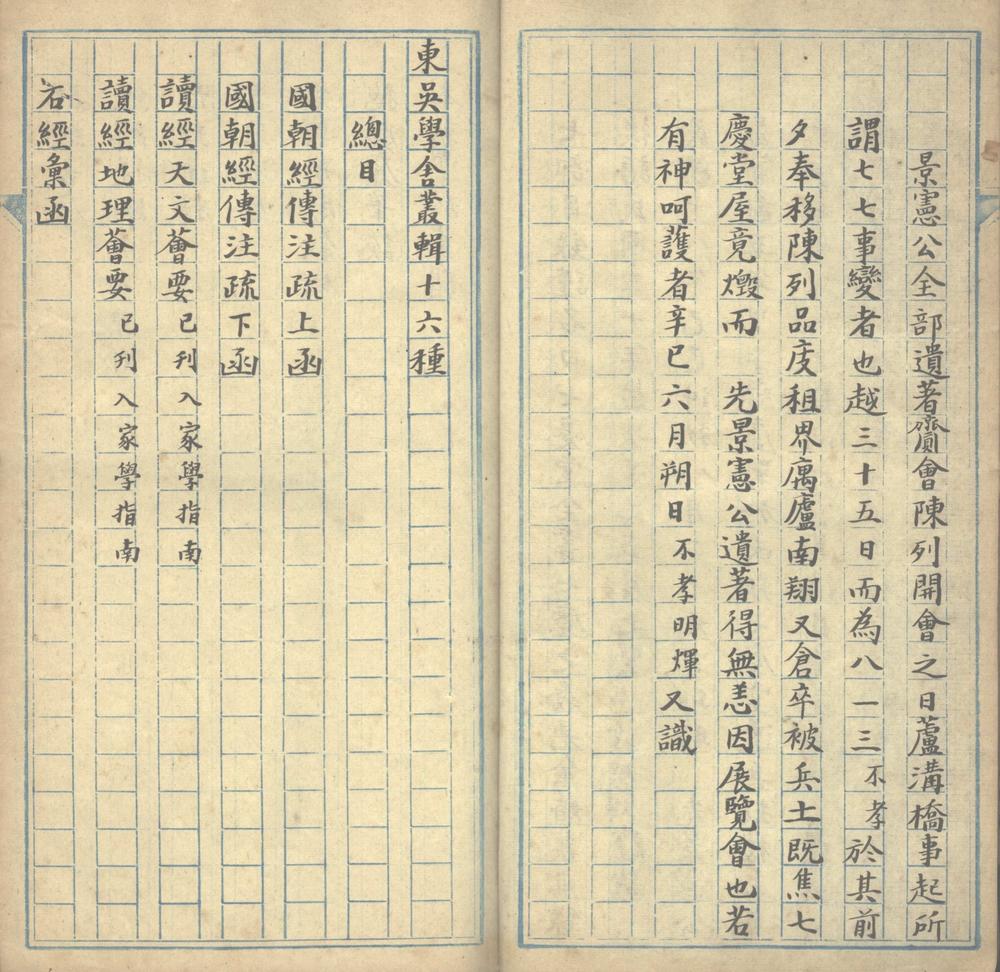 景憲公全部遺著齎會陳列開會之日蘆溝橋事起所
謂七七事變者也越三十五日而為八一三不孝於其前
夕奉移陳列品庋租界庽廬南翔又倉卒被兵土既焦七
慶堂屋竟燬而　先景憲公遺著得無恙因展覽會也若
有神呵護者辛巳六月朔日不孝明煇又識
東吳學舍叢輯十六種
總目
國朝經傳注疏上函
國朝經傳注疏下函
讀經天文薈要已刊入家學指南
讀經地理薈要已刊入家學指南
石經彙函